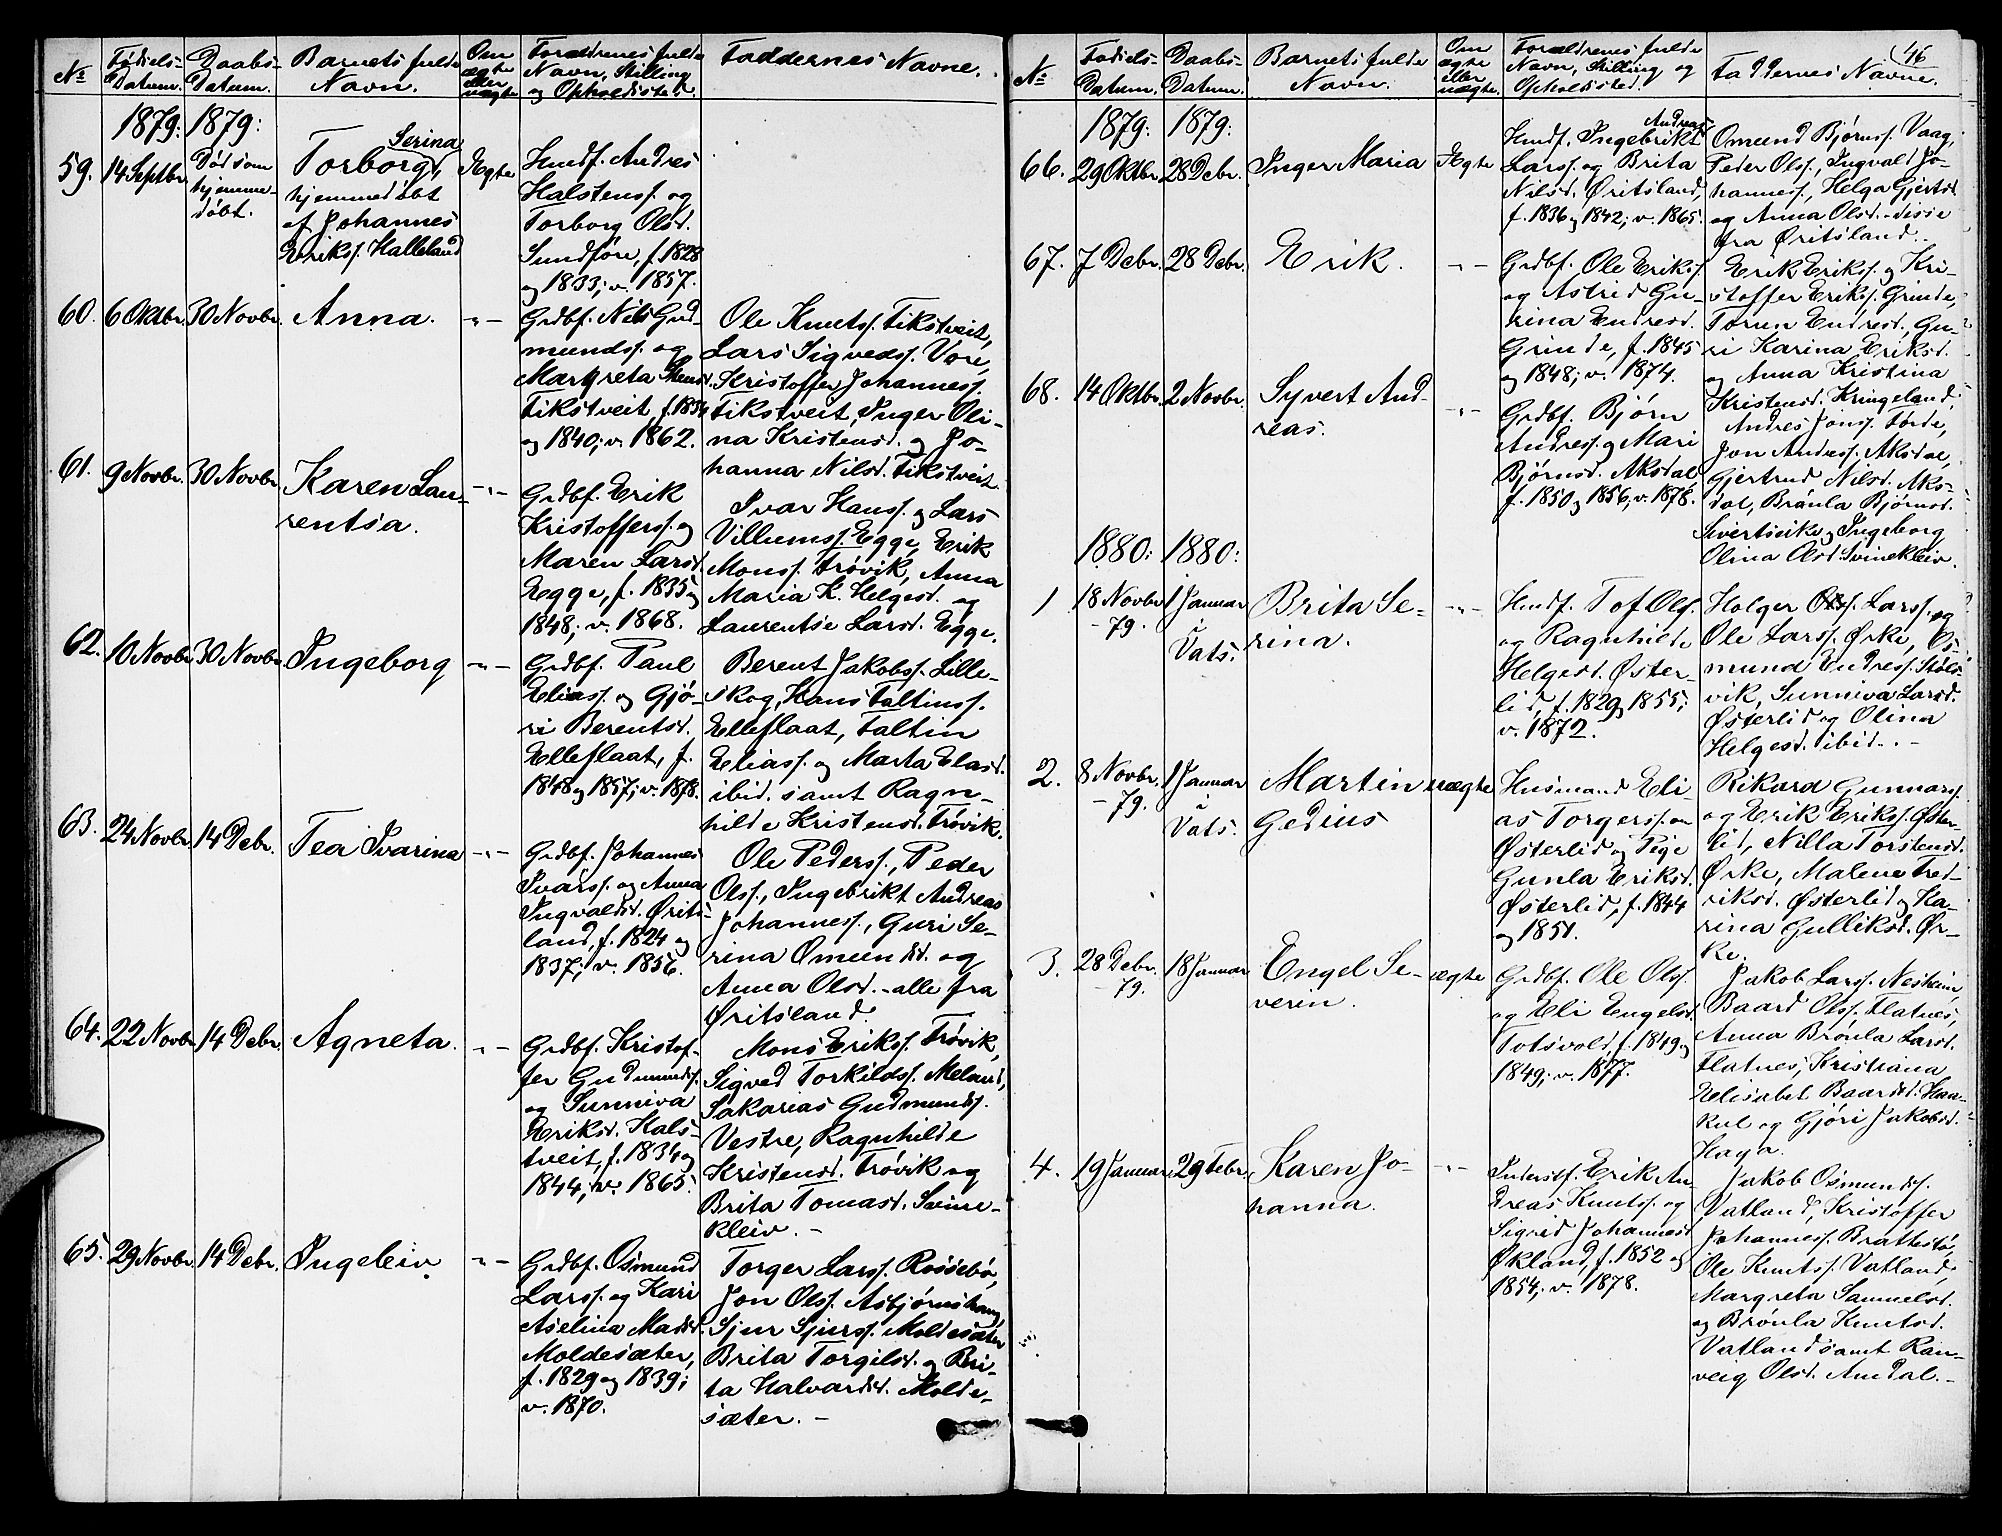 No
Fødsels-
Datum.
Daabs-
Datum.
Barnets fulde
Navn.
Om
ægte
eller
uægte
Forældrenes fulde
Navn, Stilling
og Opholdssted.
Faddernes Navne.
1879:
1879:
59.
14 Septbr.
Død som
hjemme-
døbt.
Serina
Torborg,
hjemmedøbt
af Johannes
Eriks. Halleland
Ægte
Husf. Andres
Halstenss. og
Torborg Olsd.
Sundføre, f. 1828
og 1833; v. 1857.
60.
6 Oktbr.
30 Novbr.
Anna.
"-
Grdbf. Nils Gud-
mundss. og
Margreta Stensd.
Tikstveit, f. 1834
og 1840; v. 1862.
Ole Knutss. Tikstveit,
Lars Sigvedss. Vore,
Kristoffer Johanness.
Tikstveit, Inger Oli-
na Kristensd. og Jo-
hanna Nilsd. Tikstveit.
61.
9 Novbr.
30 Novbr
Karen Lau-
rentsa.
-"-
Grdbf. Erik
Kristofferss. og
Maren Larsd.
Egge, f. 1835 og
1848; v. 1868.
Ivar Hanss. og Lars
Villumss. Egge, Erik
Monss. Trøvik, Anna
Maria K. Helgesd. og
Laurentse Larsd. Egge.
62.
10 Novbr
30 Novbr
Ingeborg
-"-
Grdbf. Paul
Eliass. og Gjø-
ri Berentsd.
Elleflaat, f.
1848 og 1857; v. 1878.
Berent Jakobss. Lille-
skog, Hans Faltinss.
Elleflaat, Faltin
Eliass. og Marta Elasd.
ibid. samt Ragn-
hilde Kristensd. Trøvik.
63.
24 Novbr.
14 Debr.
Tea Ivarina
-"-
Grdbf. Johannes
Ivarss. og Anna
Ingvaldsd. Ørits-
land, f. 1824 og
1837; v. 1856.
Ole Pederss., Peder
Olss., Ingebrikt Andreas
Johanness., Guri Se-
rina Omundsd. og
Anna Olsd. - alle fra
Øritsland.
64.
22 Novbr
14 Debr.
Agneta.
"-
Grdbf. Kristof-
fer Gudmundss.
og Sunniva
Eriksd. Hals-
tveit, f. 1834 og
1844; v. 1865.
Mons Erikss. Trøvik,
Sigved Torkildss. Meland,
Sakarias Gudmundss.
Vestre, Ragnhilde
Kristensd. Trøvik og
Brita Tomasd. Svine-
kleiv. -
65.
29 Novbr.
14 Debr.
Ingeleiv
"-
Grdbf. Osmund
Larss. og Kari
Aselina Madsd.
Moldesæter,
f. 1829 og 1839;
v. 1870.
Torger Larss. Rossebø,
Jon Olss. Asbjørnshaug,
Sjur Sjurss. Moldesæter
Brita Torgilsd. og Bri-
ta Halvardsd. Molde-
sæter. -
46
No
Fødsels-
Datum.
Daabs-
Datum.
Barnets fulde
Navn.
Om
ægte
eller
uægte.
Forældrenes fulde
Navn, Stilling og
Opholdssted.
Faddernes Navne.
1879:
1879:
66.
29 Oktbr.
28 Debr.
Inger Maria
Ægte
Andreas
Husf. Ingebrikt
Larss. og Brita
Nilsd. Øritsland,
f. 1836 og 1842; v. 1865.
Omund Bjørnss. Vaag,
Peder Olss., Ingvald Jo-
hanness., Helga Gjertsd.
og Anna Olsd. - disse
fra Øritsland.
67.
7 Debr.
28 Debr.
Erik.
"-
Grdbf. Ole Erikss.
og Astrid Gu-
rina Endresd.
Grinde, f. 1845
og 1848; v. 1874.
Erik Erikss. og Kri-
stoffer Erikss. Grinde,
Torun Endresd., Gu-
ri Karina Eriksd.
og Anna Kristina
Kristensd. Kringeland.
68.
14 Oktbr.
2 Novbr.
Syvert And-
reas.
-"-
Grdbf. Bjørn
Andress. og Mari
Bjørnsd. Aksdal
f. 1850 og 1856, v. 1878.
Andres Jonss. Førde,
Jon Andress. Aksdal,
Gjertrud Nilsd. Aks-
dal, Brønla Bjørnsd.
Sivertsvik og Ingeborg
Olina Olsd. Svinekleiv.
1880:
1880:
1
18 Novbr
-79.
1 Januar
i
Vats.
Brita Se-
rina.
-"-
Husf. Tof Olss.
og Ragnhilde
Helgesd. Øster-
lid, f. 1829 og 1855;
v. 1872.
Holger Larss. og
Ole Larss. Ørke, Os-
mund Endress. Støls-
vik, Sunniva Larsd.
Østerlid og Olina
Helgesd. ibid. . -
2.
8 Novbr.
-79.
1 Januar
i
Vats.
Martin
Gedius
uægte
Husmand Eli-
as Torgerss. en
Østerlid og Pige
Gunla Eriksd.
Østerlid, f. 1844
og 1851.
Rikard Gunnarss.
og Erik Erikss. Øster-
lid, Nilla Torstensd.
Ørke, Malene Fred-
riksd. Østerlid og Ka-
rina Gulliksd. Ør-
ke.
3.
28 Debr.
-79.
18 Januar
Engel Se-
verin.
ægte
Grdbf. Ole Olss.
og Eli Engelsd.
Totsvold, f. 1849 og
1849; v. 1877.
Jakob Larss. Nesheim,
Baard Olss. Flatnes,
Anna Brønla Larsd.
Flatnes, Kristiana
Elisabet Baardsd. Hau-
kul og Gjøri Jakobsd.
Haga.
4.
19 Januar.
29 Febr.
Karen Jo-
hanna.
-"-
Inderstf. Erik An-
dreas Knutss. og
Sigrid Johannesd.
Økland, f. 1852 og
1854; v. 1878.
Jakob Osmundss.
Vatland, Kristoffer
Johanness. Brattestø,
Ole Knutss. Vatland,
Margreta Samuelsd.
og Brønla Knutsd.
Vatland samt Ran-
veig Olsd. Amdal. -